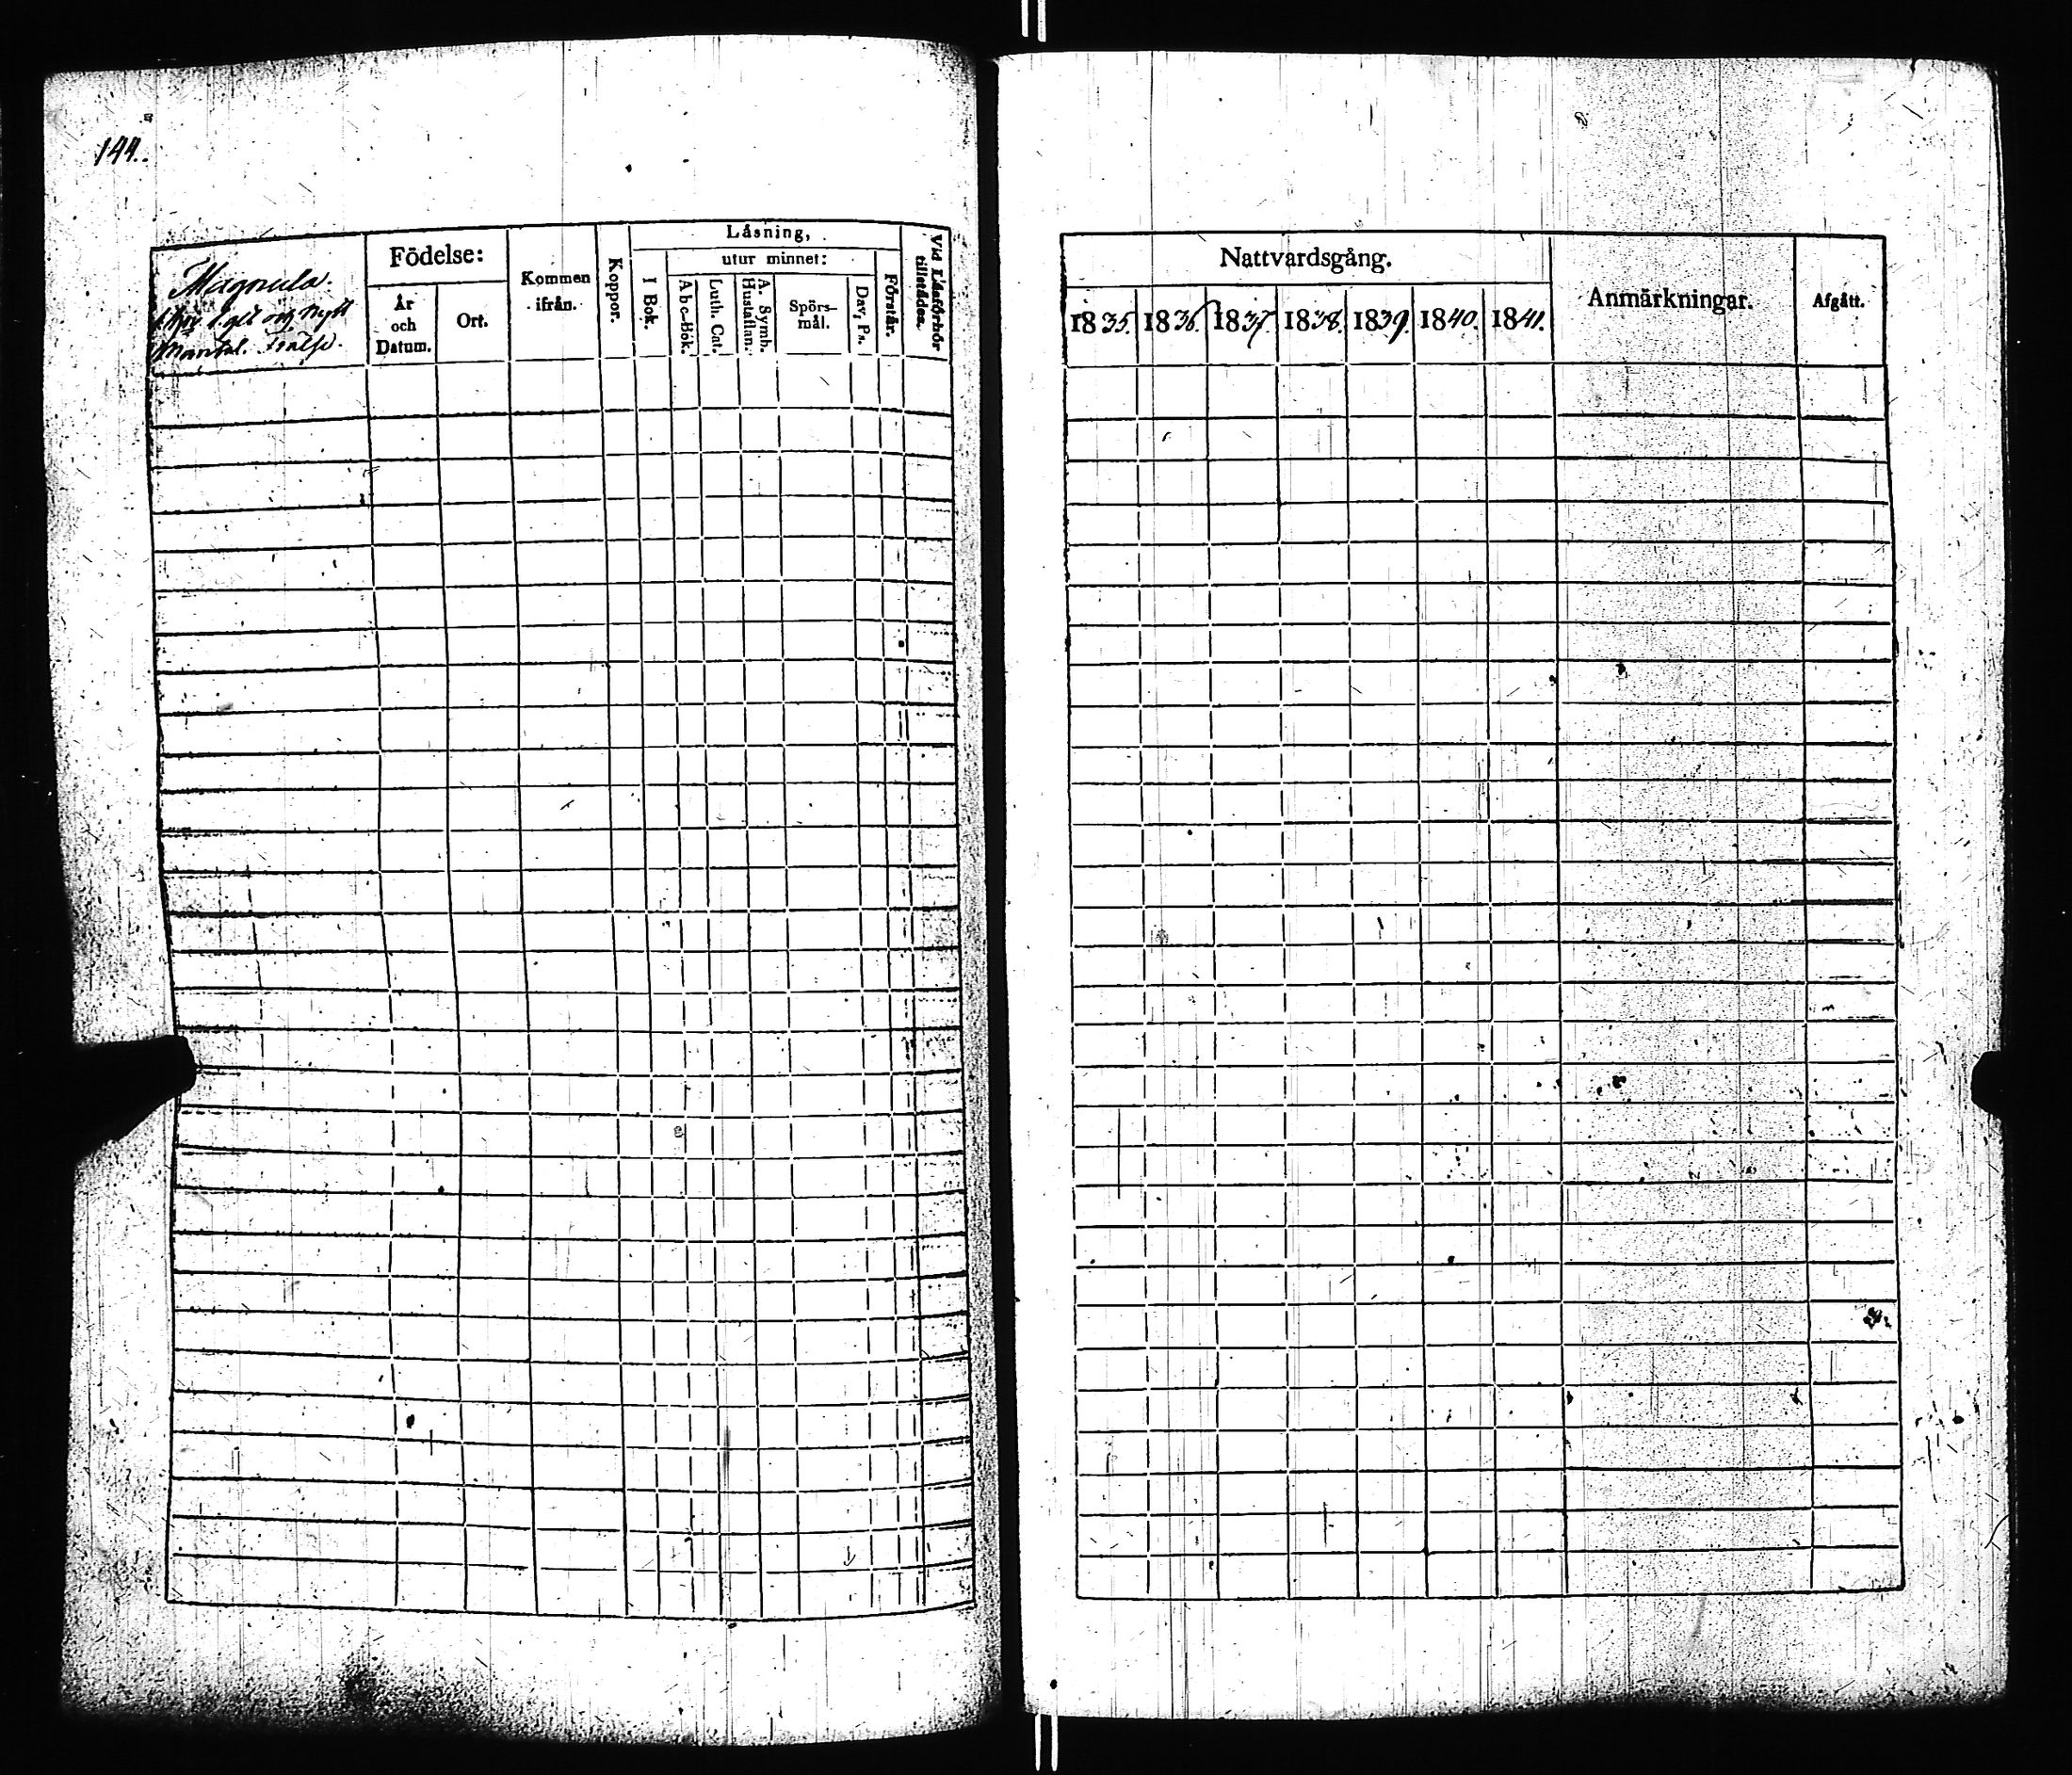 144.
Magnula.
Mantal. Frälse.
Födelse:
År
och
Datum.
Ort.
Kommen
ifrån.
Koppor.
Läsning,
I Bok.
utur minnet:
Abc-Bok.
Luth. Cat.
A. Symb.
Hustaflan.
Spörs-
mål.
Dav. Ps.
Förstår.
Vid Läsförhör
tillstädes.
Nattvardsgång.
1835.
1836.
1837.
1838.
1839.
1840.
1841.
Anmärkningar.
Afgått.